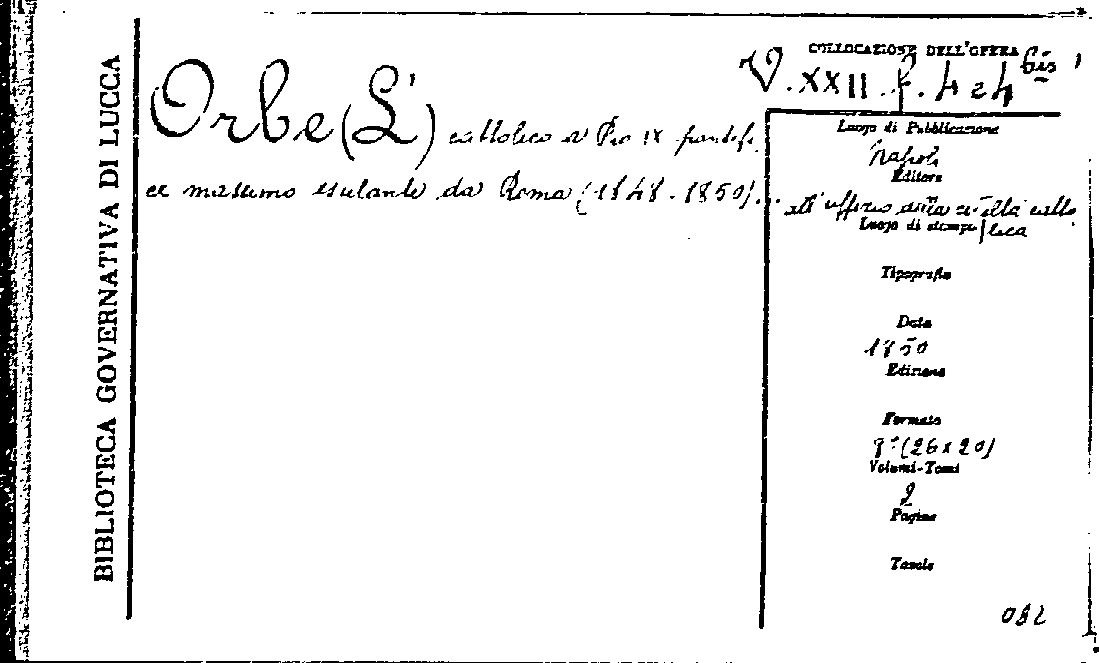 BIBLIOTECA GOVERNATIVA DI LUCCA
Orbe (L') cattolico a Pio IX pontefi-
ce massimo esulante da Roma (1848-1850)...
COLLOCAZIONE DELL'OPERA
V. XXII. f. 4 e 4 bis
Luogo di Pubblicazione
Napoli
Editore
all'ufficio della civiltà catto
lica
Luogo di stampa
Tipografia
Data
1850
Edizione
Formato
8° (26 x 20)
Volumi-Tomi
2
Pagine
Tavole